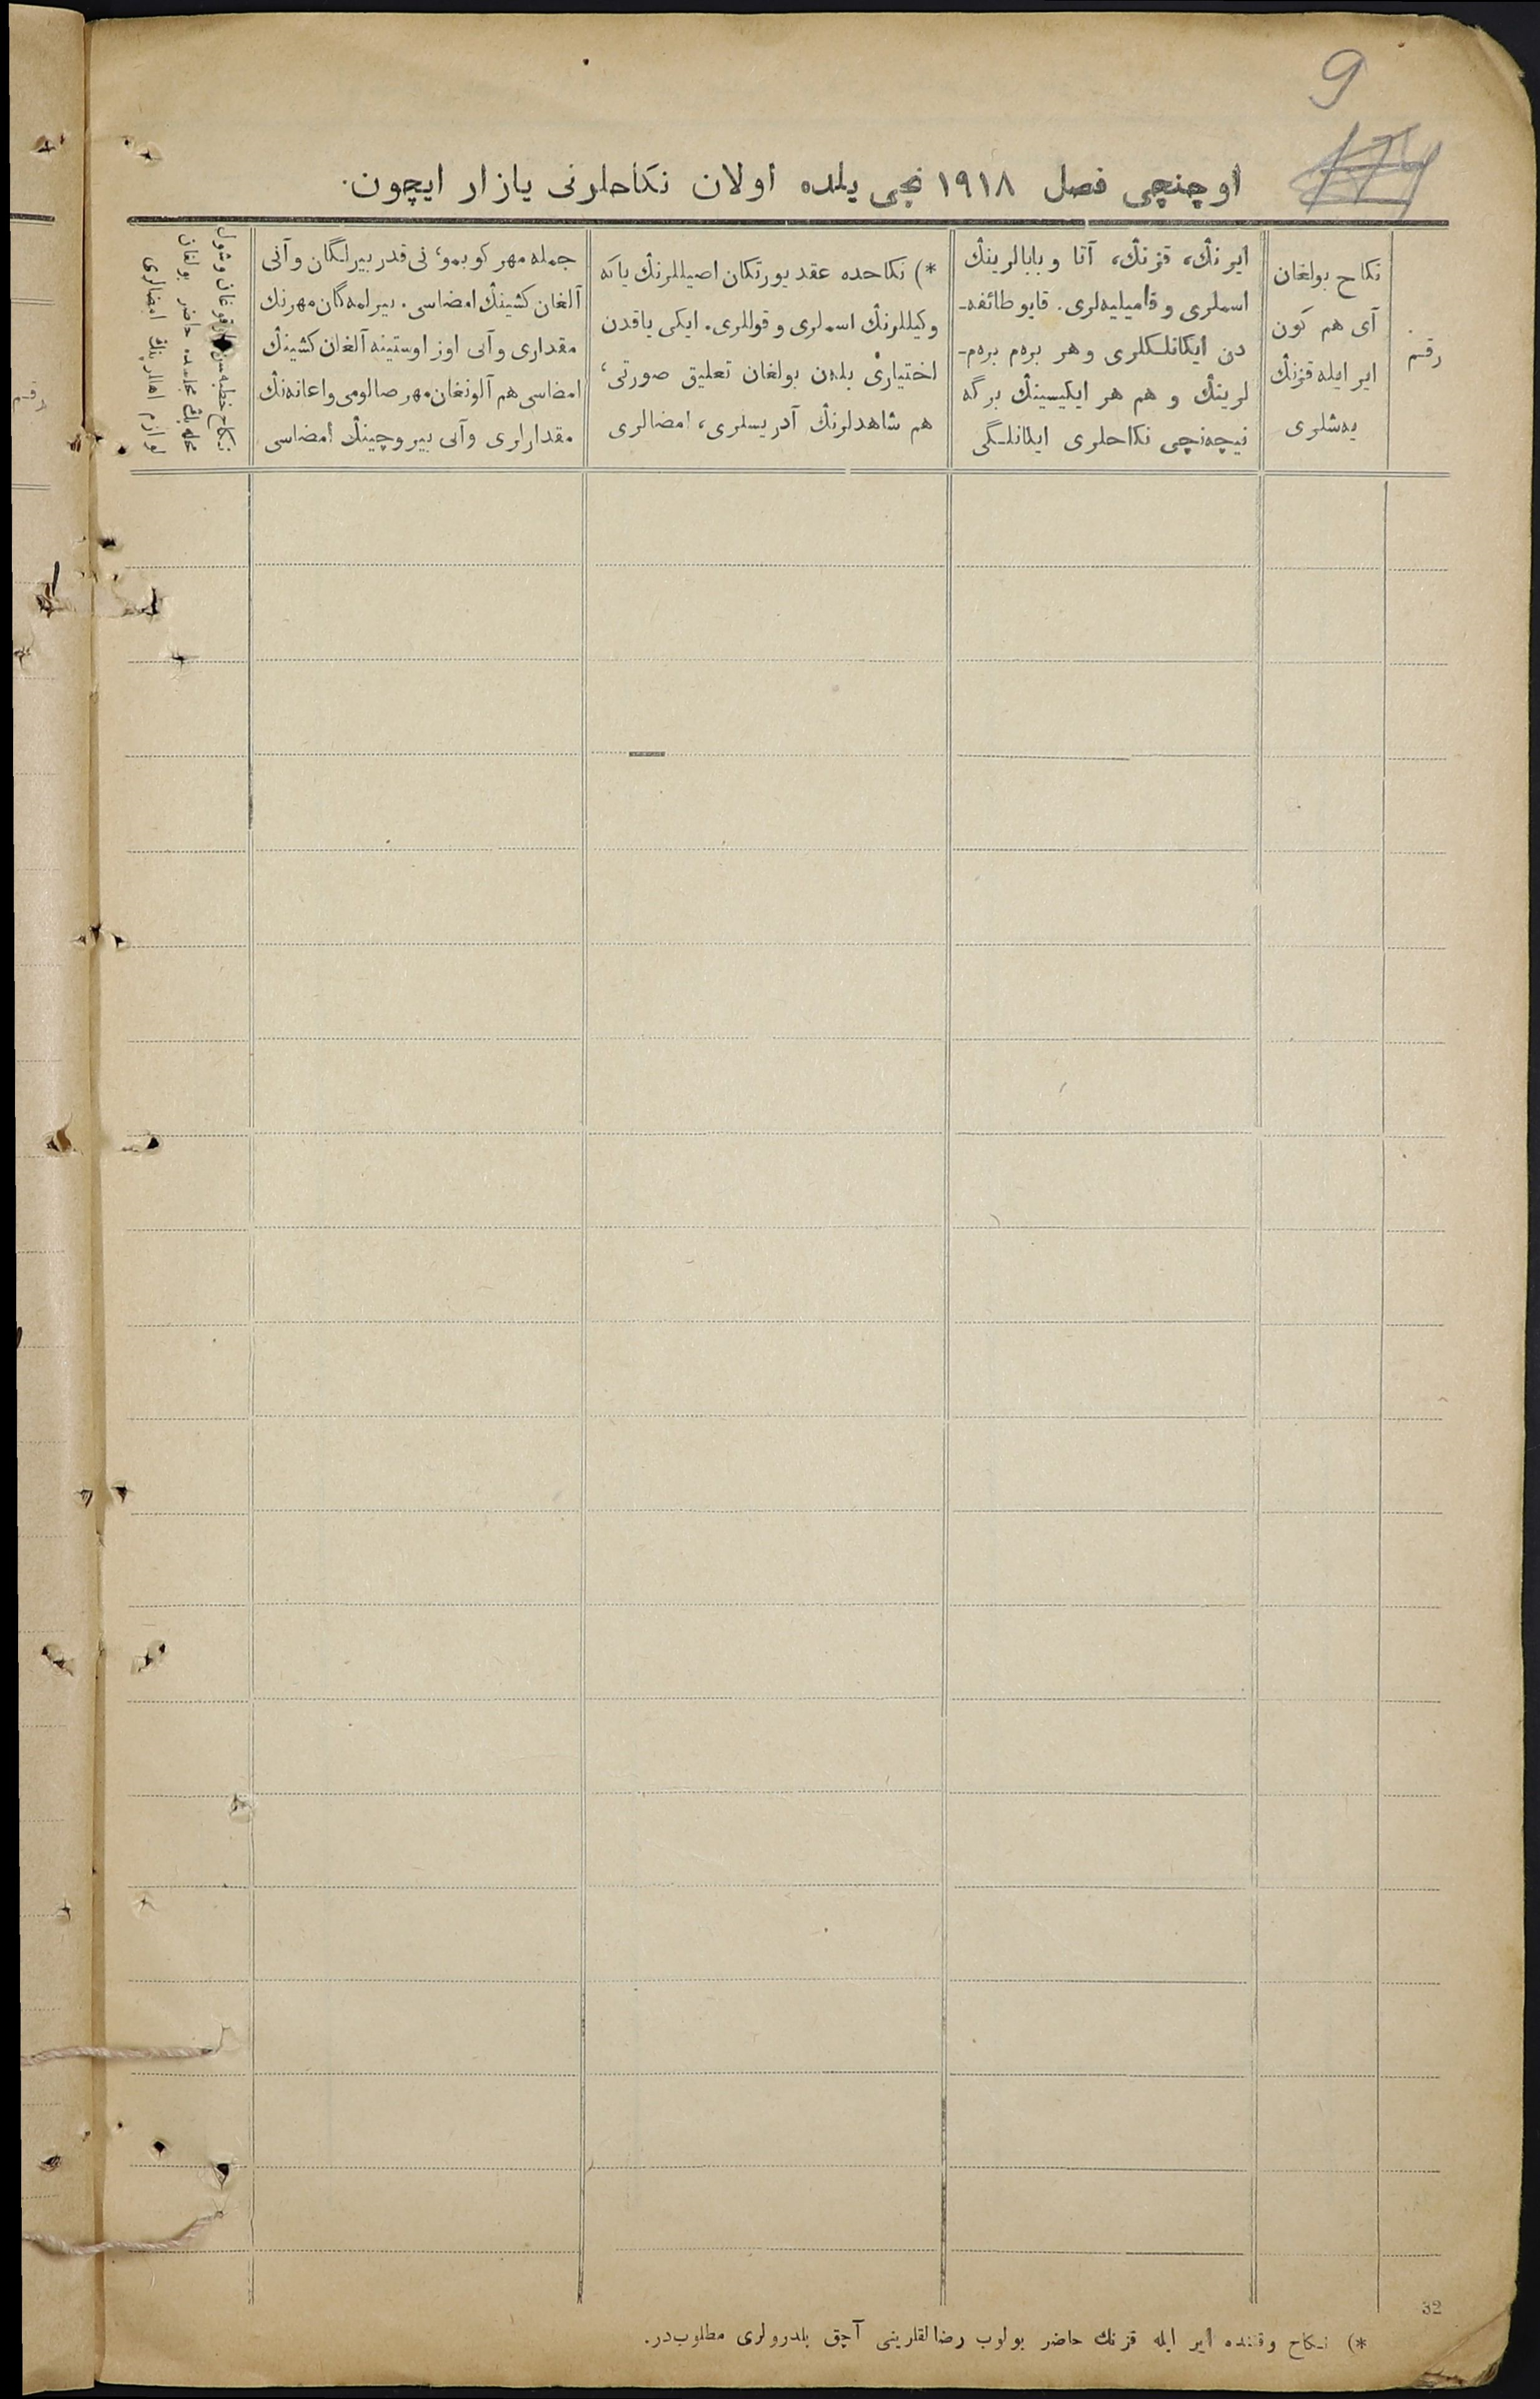 9
اوچنچی فصل ۱۹۱۸ نچی یلده اولان نكاحلرنی یازار ایچون.
رقم
نكاح بولغان
آی هم كون
ایر ایله قزنڭ
یەشلری
ایرنڭ، قزنڭ، آتا و بابالرینڭ
اسملری و فامیلیەلری. قایو طائفه-
دن ایكانلكلری و هر برەم برەم-
لرینڭ و هم هر ایكیسینڭ برگه
نیچەنچی نكاحلری ایكانلگی
*) نكاحده عقد یورتكان اصیللرنڭ یاكه
وكیللرنڭ اسملری و قوللری. ایكی یاقدن
اختیاری بلەن بولغان تعلیق صورتی؛
هم شاهدلرنڭ آدریسلری، امضالری
جمله مهر كوبمو؛ نی قدر بیرلگان و آنی
آلغان كشینڭ امضاسی. بیرلمەگان مهرنڭ
مقداری و آنی اوز اوستینه آلغان كشینڭ
امضاسی هم آلونغان مهر صالومی و اعانەنڭ
مقدارلری و آنی بیروچینڭ امضاسی
نكاح خطبەسن اوقوغان و شول
محلەنڭ مجلسده حاضر بولغان
لوازم اهللرینڭ امضالری
32
*) نكاح وقتنده ایر ایله قزنڭ حاضر بولوب رضالقلرینی آچق بلدرولری مطلوب‌در.